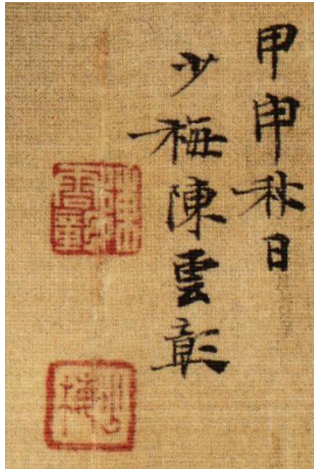 甲申秋日
少梅陳雲彰
陳雲彰
少梅